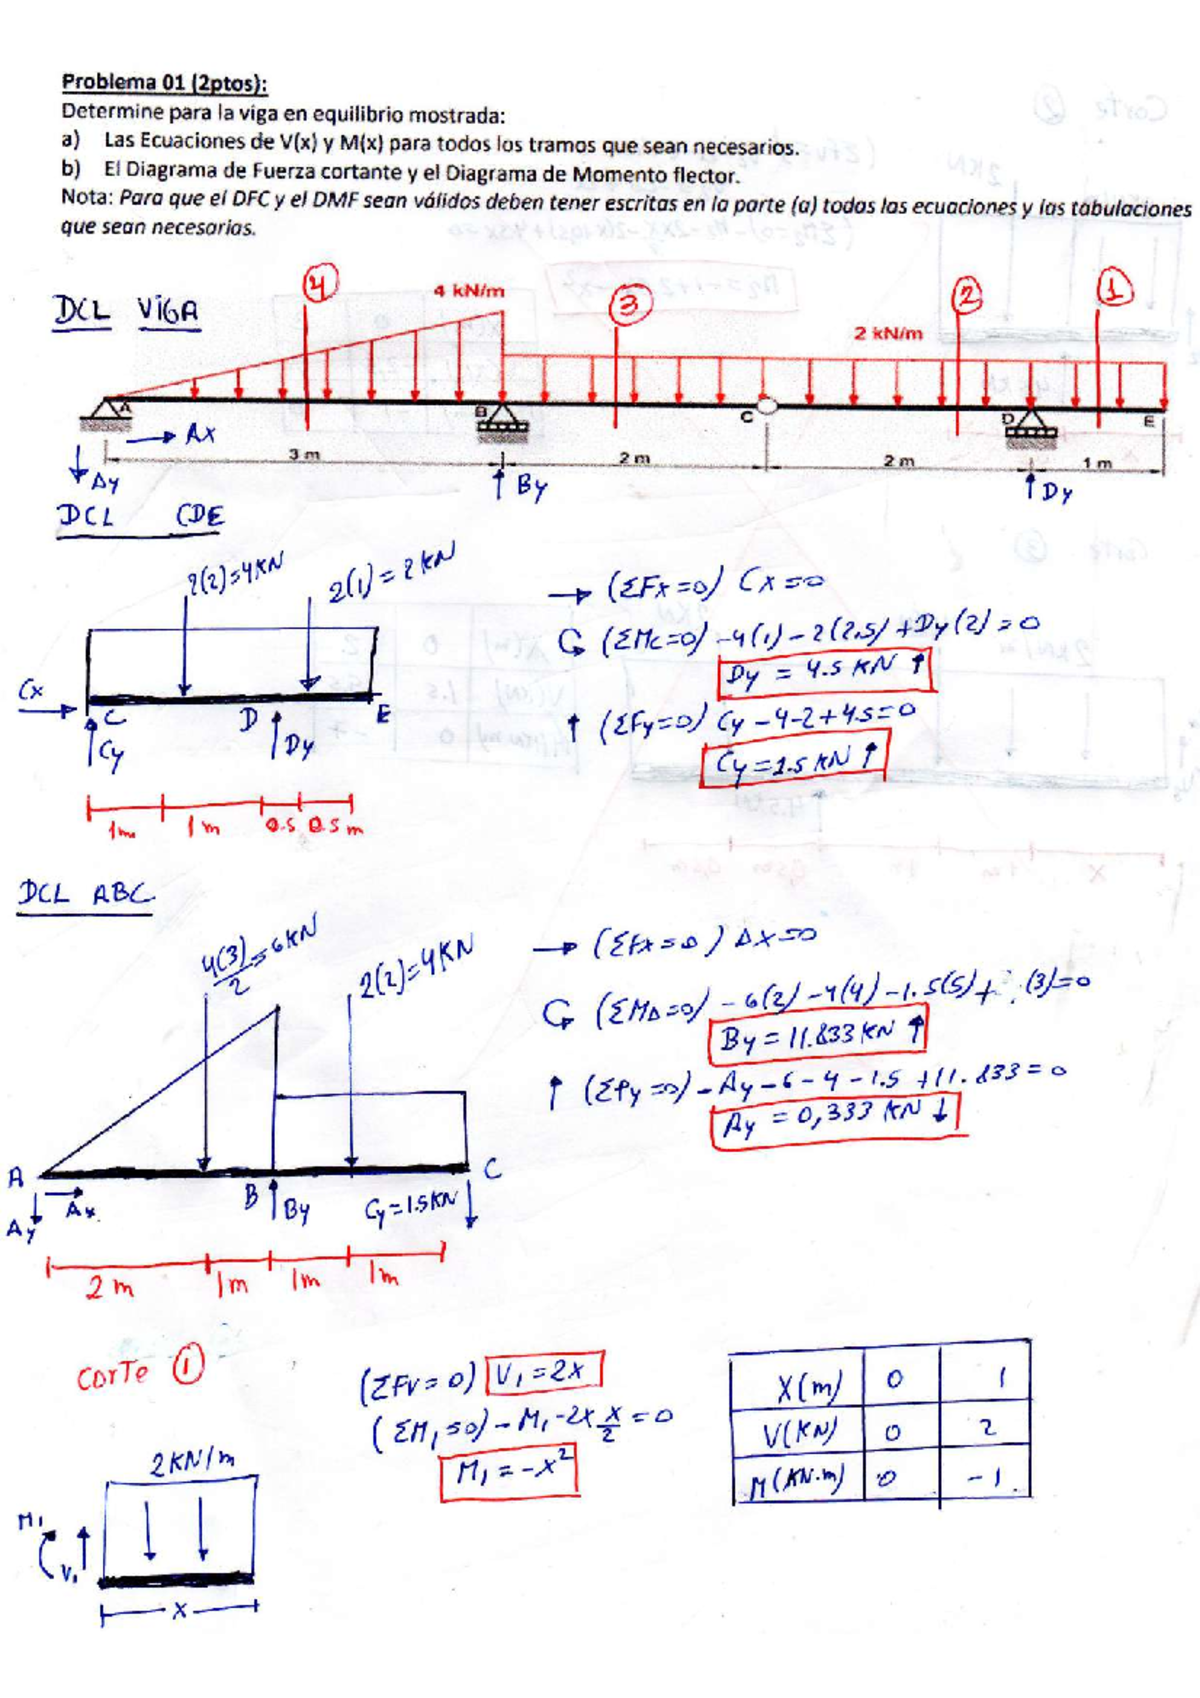 Problema 01 (2ptos):
Determine para la viga en equilibrio mostrada:
a) Las Ecuaciones de V(x) y M(x) para todos los tramos que sean necesarios.
b) El Diagrama de Fuerza cortante y el Diagrama de Momento flector.
Nota: Para que el DFC y el DMF sean válidos deben tener escritas en la parte (a) todas las ecuaciones y las tabulaciones
que sean necesarias.
DCL VIGA
4
4 kN/m
3
2
1
2 kN/m
A
B
C
D
E
Ax
3 m
2 m
2 m
1 m
Ay
By
Dy
DCL CDE
2(2)=4KN
2(1)=2KN
→ (ΣFx=0) Cx=0
(ΣMc=0) -4(1)-2(2.5)+Dy(2)=0
Dy = 4.5 KN ↑
Cx
C
D
E
Cy
Dy
↑ (ΣFy=0) Cy-4-2+4.5=0
Cy=1.5 KN ↑
1m
1m
0.5
0.5 m
DCL ABC
4(3)/2=6KN
2(2)=4KN
→ (ΣFx=0) Ax=0
(ΣMA=0) -6(2)-4(4)-1.5(5)+ (3)=0
By=11.833KN ↑
↑ (ΣFy=0) -Ay-6-4-1.5+11.833=0
Ay = 0,333 KN ↓
A
B
C
Ay
Ax
By
Cy=1.5KN
2 m
1m
1m
1m
Corte 1
(ΣFv=0) V1=2x
(ΣM1=0) -M1-2x x/2 = 0
M1 = -x²
X(m) 0 1
V(KN) 0 2
M(KN.m) 0 -1
2KN/m
M1
V1
X